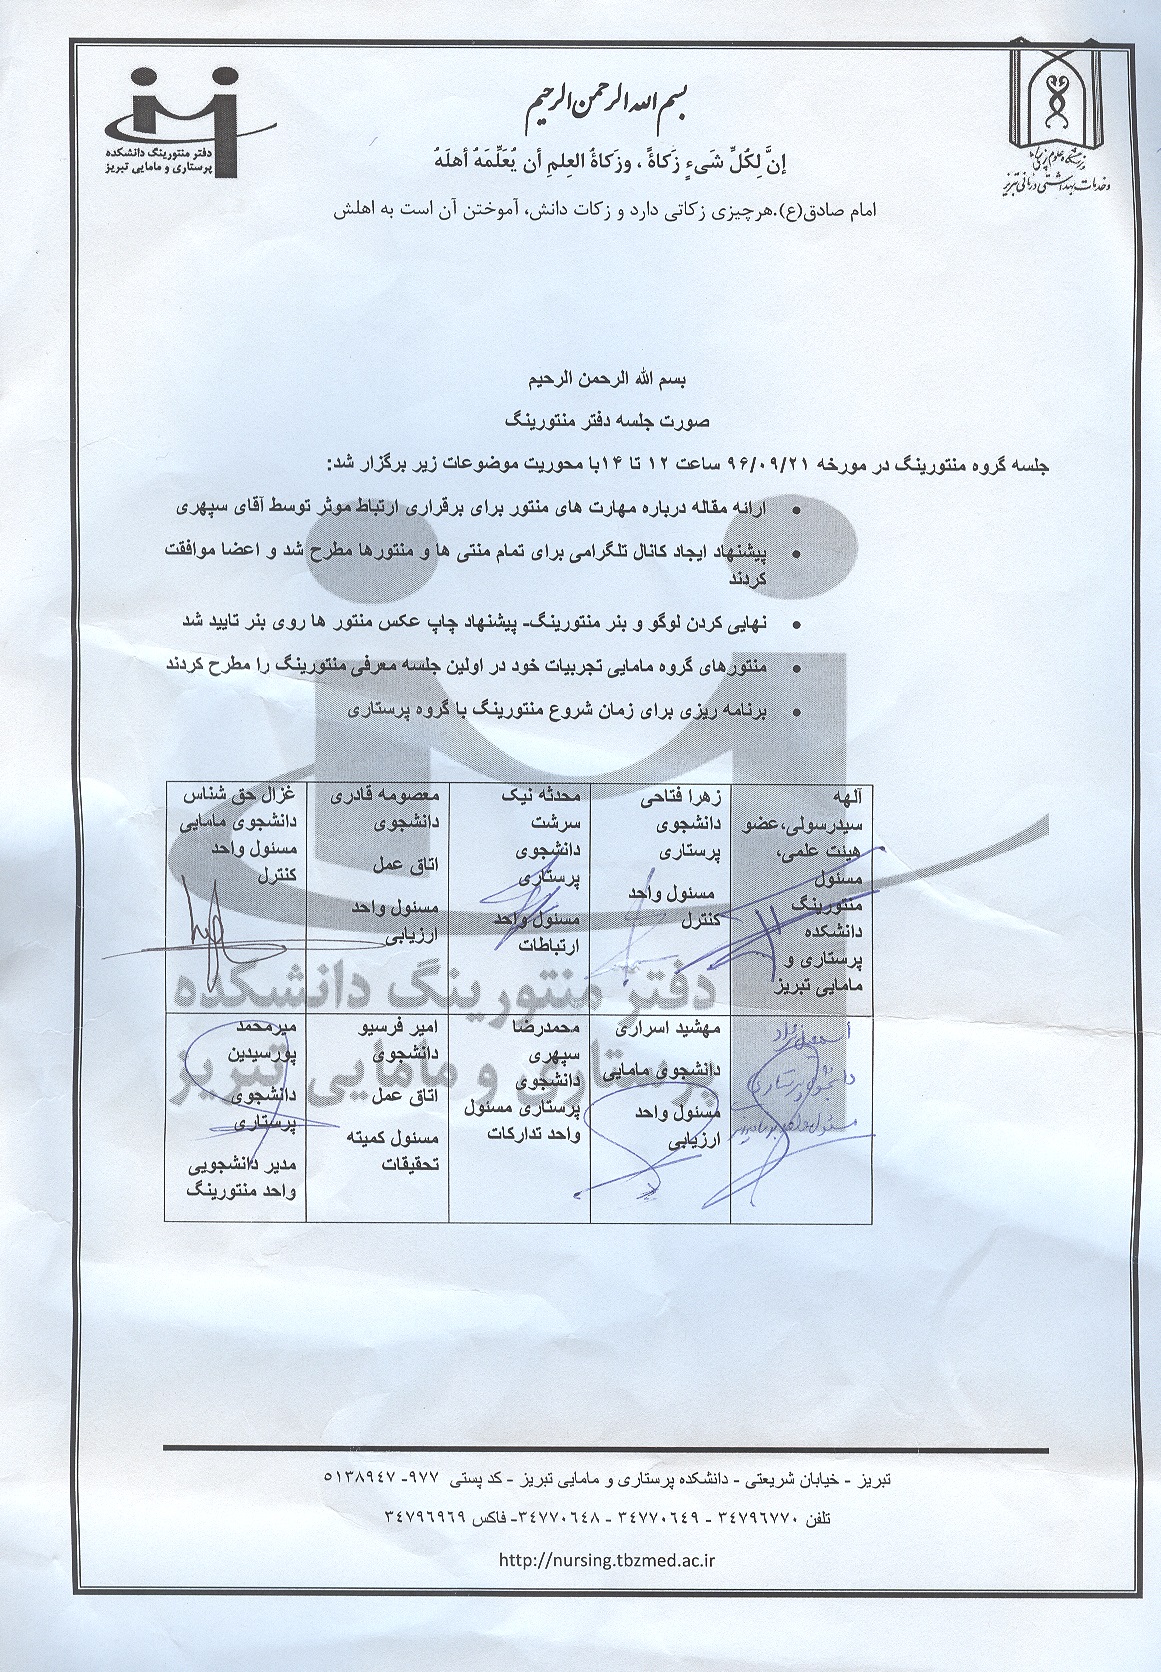 بسم الله الرحمن الرحیم
إنَّ لِکُلِّ شَیءٍ زَکاةً ، وزَکاةُ العِلمِ أن یُعَلِّمَهُ أهلَهُ
امام صادق(ع).هرچیزی زکاتی دارد و زکات دانش، آموختن آن است به اهلش
دفتر منتورینگ دانشکده
پرستاری و مامایی تبریز
دانشگاه علوم پزشکی
و خدمات بهداشتی درمانی تبریز
بسم الله الرحمن الرحیم
صورت جلسه دفتر منتورینگ
جلسه گروه منتورینگ در مورخه ۹۶/۰۹/۲۱ ساعت ۱۲ تا ۱۴با محوریت موضوعات زیر برگزار شد:
• ارائه مقاله درباره مهارت های منتور برای برقراری ارتباط موثر توسط آقای سپهری
• پیشنهاد ایجاد کانال تلگرامی برای تمام منتی ها و منتورها مطرح شد و اعضا موافقت
کردند
• نهایی کردن لوگو و بنر منتورینگ- پیشنهاد چاپ عکس منتور ها روی بنر تایید شد
• منتورهای گروه مامایی تجربیات خود در اولین جلسه معرفی منتورینگ را مطرح کردند
• برنامه ریزی برای زمان شروع منتورینگ با گروه پرستاری
آلهه
سیدرسولی،عضو
هیئت علمی،
مسئول
منتورینگ
دانشکده
پرستاری و
مامایی تبریز
زهرا فتاحی
دانشجوی
پرستاری
مسئول واحد
کنترل
محدثه نیک
سرشت
دانشجوی
پرستاری
مسئول واحد
ارتباطات
معصومه قادری
دانشجوی
اتاق عمل
مسئول واحد
ارزیابی
غزال حق شناس
دانشجوی مامایی
مسئول واحد
کنترل
دانشجوی پرستاری
مهشید اسراری
دانشجوی مامایی
مسئول واحد
ارزیابی
محمدرضا
سپهری
دانشجوی
پرستاری مسئول
واحد تدارکات
امیر فرسیو
دانشجوی
اتاق عمل
مسئول کمیته
تحقیقات
میرمحمد
پورسیدین
دانشجوی
پرستاری
مدیر دانشجویی
واحد منتورینگ
دفتر منتورینگ دانشکده
پرستاری و مامایی تبریز
تبریز - خیابان شریعتی - دانشکده پرستاری و مامایی تبریز - کد پستی ۹۷۷- ۵۱۳۸۹۴۷
تلفن ۳۴۷۹۶۷۷۰ - ۳۴۷۷۰۶۴۹ - ۳۴۷۷۰۶۴۸- فاکس ۳۴۷۹۶۹۶۹
http://nursing.tbzmed.ac.ir